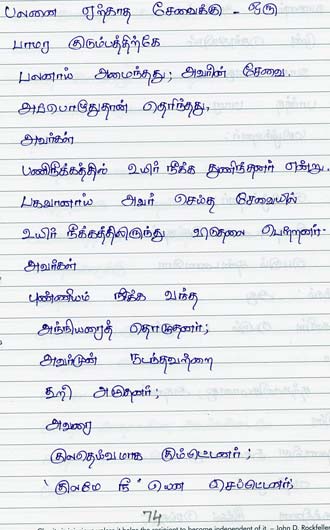 பலனை ஏற்காத சேவைக்கு - ஒரு
பாமர குடும்பத்திற்கே
பலனாய் அமைந்தது; அவரின் சேவை.
அப்பொழுதுதான் தெரிந்தது,
அவர்கள்
பணிநீக்கத்தில் உயிர் நீக்க துணிந்தனர் என்று.
பகவானாய் அவர் செய்த சேவையில்
உயிர் நீக்கத்திலிருந்து விடுதலை பெற்றனர்.
அவர்கள்
புண்ணியம் நீக்க வந்த
அந்நியரைத் தொழுதனர்;
அவர்முன் நடந்தவற்றை
கூறி அழுதனர்;
அவரை
குலதெய்வமாக கும்பிட்டனர்;
'குலமே நீ' யென செப்பிட்டனர்;
74
to become independent of it. – John D. Rockfeller